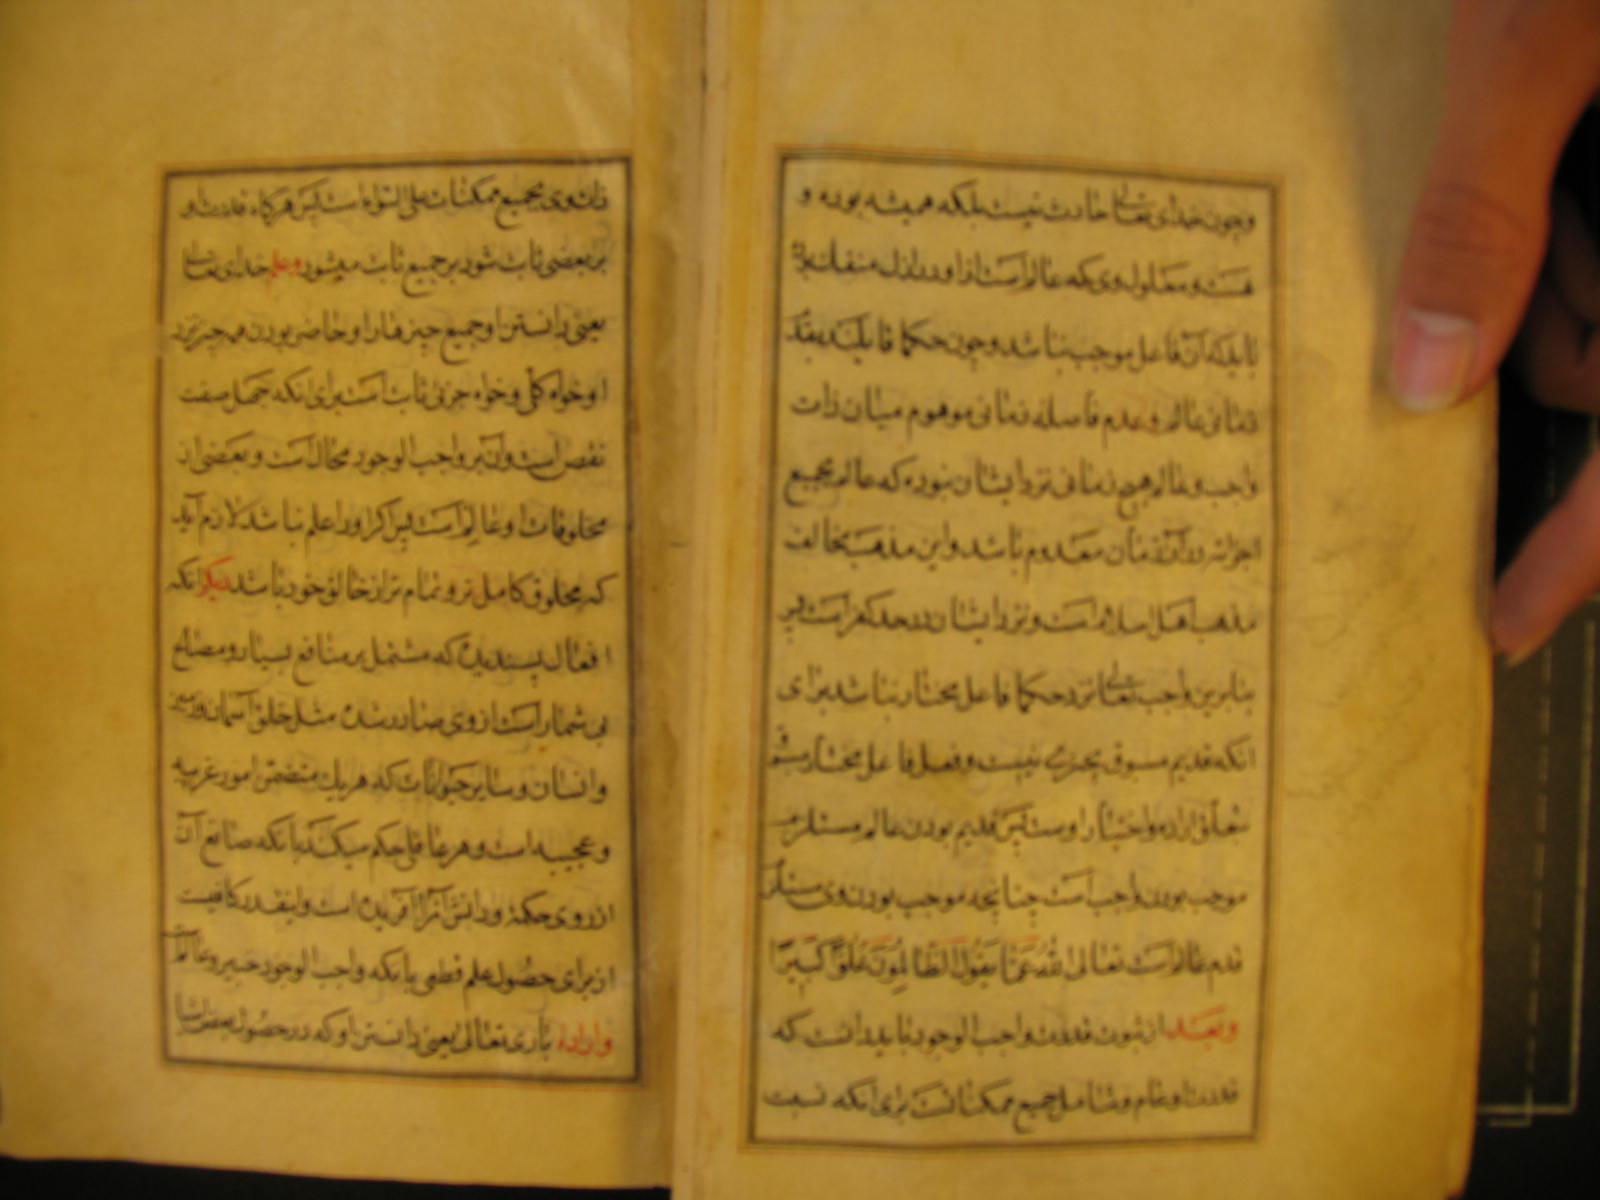 وجون خدای تعالی حادث نیست بلکه همیشه بوده و
هست و معلول وی که عالم است از او در ازل منفک
باید که آن فاعل موجب نباشد و چون حکما قایلند بقدم
زمانی عالم و عدم فاصله زمانی موهوم میان ذات
واجب و عالم هیچ زمانی نزد ایشان نبوده که عالم بجمیع
اجزائه در آن زمان معدوم باشد و این مذهب مخالف
مذهب اهل اسلام است و نزد ایشان در حد کفر است پس
بنابرین واجب تعالی نزد حکما فاعل مختار نباشد برای
انکه قدیم مسبوق بچیزی نیست و فعل فاعل مختار مسبوق
بتعلق اراده و اختیار اوست پس قدیم بودن عالم مستلزم
موجب بودن واجب است چنانچه موجب بودن وی مستلزم
قدم عالم است تعالی الله عما یقول الظالمون علوا کبیرا
وبعد از ثبوت قدرت واجب الوجود باید دانست که
قدرت او عام و شامل جمیع ممکنات است برای انکه نسبت
ذات وی بجمیع ممکنات علی السواء است پس هرکاه قدرت او
بر بعضی ثابت شود بر جمیع ثابت میشود وعلم خدای تعالی
یعنی دانستن او جمیع چیزها را و حاضر بودن همه چیز نزد
او خواه کلی و خواه جزئی ثابت است برای انکه جهل صفت
نقص است و آن بر واجب الوجود محال است و بعضی از
مخلوقات او عالم است پس اکر او را علم نباشد لازم آید
که مخلوق کامل تر و تمام تر از خالق خود باشد دیکر انکه
افعال پسندیده که مشتمل بر منافع بسیار و مصالح
بی شمار است از وی صادر شده مثل خلق آسمان و زمین
و انسان و سایر حیوانات که هر یک متضمن امور غریبه
و عجیبه است و هر عاقلی حکم میکند بانکه صانع آن
از روی حکمة و دانش آنرا آفریده است و اینقدر کافیست
از برای حصول علم قطعی بانکه واجب الوجود خبیر و عالم است
واراده باری تعالی یعنی دانستن او که در حصول بعض اشیا